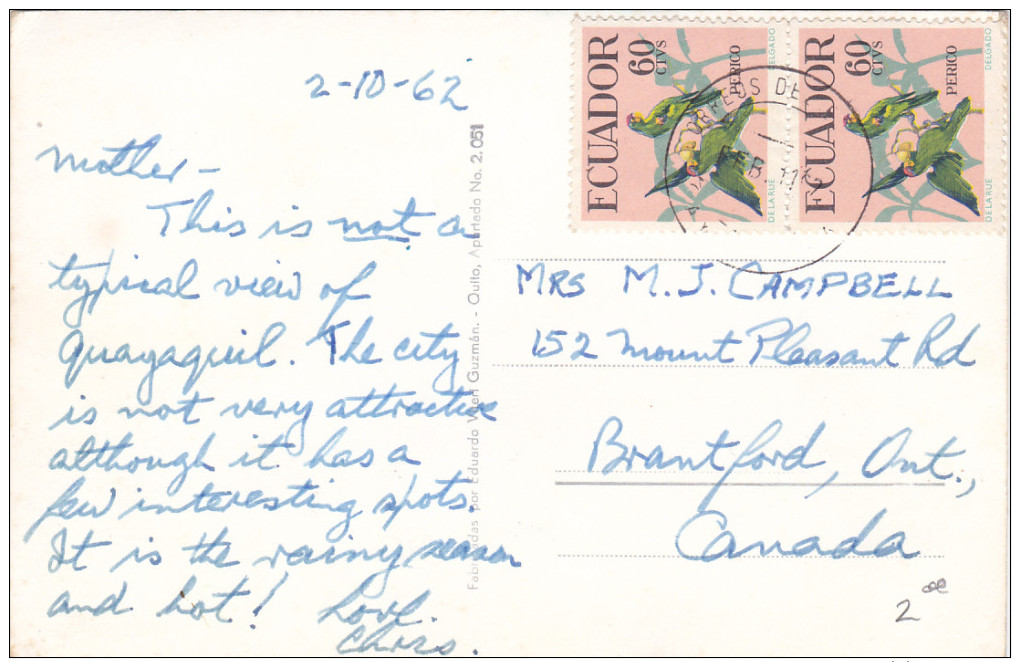 2-10-62
Mother -
This is not a
typical view of
Guayaquil. The city
is not very attractive
although it has a
few interesting spots.
It is the rainy season
and hot! Love.
Chris.
Fabricadas por Eduardo Guzmán. - Quito, Apartado No. 2.051
ECUADOR
60
CTVS
PERICO
DELGADO
DELARUE
ECUADOR
60
CTVS
PERICO
DELGADO
DELARUE
CORREOS DE
FEB.
MRS M.J. CAMPBELL
152 Mount Pleasant Rd
Brantford, Ont.,
Canada
2 00